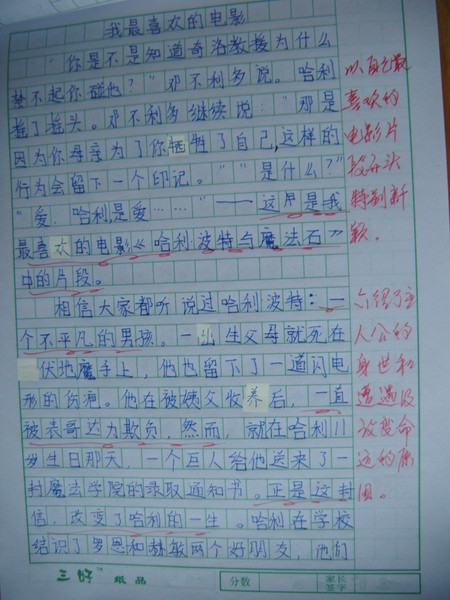 我最喜欢的电影
“你是不是知道奇洛教授为什么
禁不起你碰他？”邓不利多说。哈利
摇了摇头。邓不利多继续说：“那是
因为你母亲为了你牺牲了自己,这样的
行为会留下一个印记。”“是什么？”
“爱，哈利,是爱……”——这便是我
最喜欢的电影《哈利·波特与魔法石》
中的片段。
相信大家都听说过哈利波特：一
个不平凡的男孩。一出生父母就死在
伏地魔手上，他也留下了一道闪电
形的伤疤。他在被姨父收养后，一直
被表哥达力欺负，然而，就在哈利11
岁生日那天，一个巨人给他送来了一
封魔法学院的录取通知书。正是这封
信，改变了哈利的一生。哈利在学校
结识了罗恩和赫敏两个好朋友，他们
以自己最
喜欢的
电影片
段开头
特别新
颖。
介绍了主
人公的
身世和
遭遇及
改变命
运的原
因。
三好 纸品
分数
家长
签字